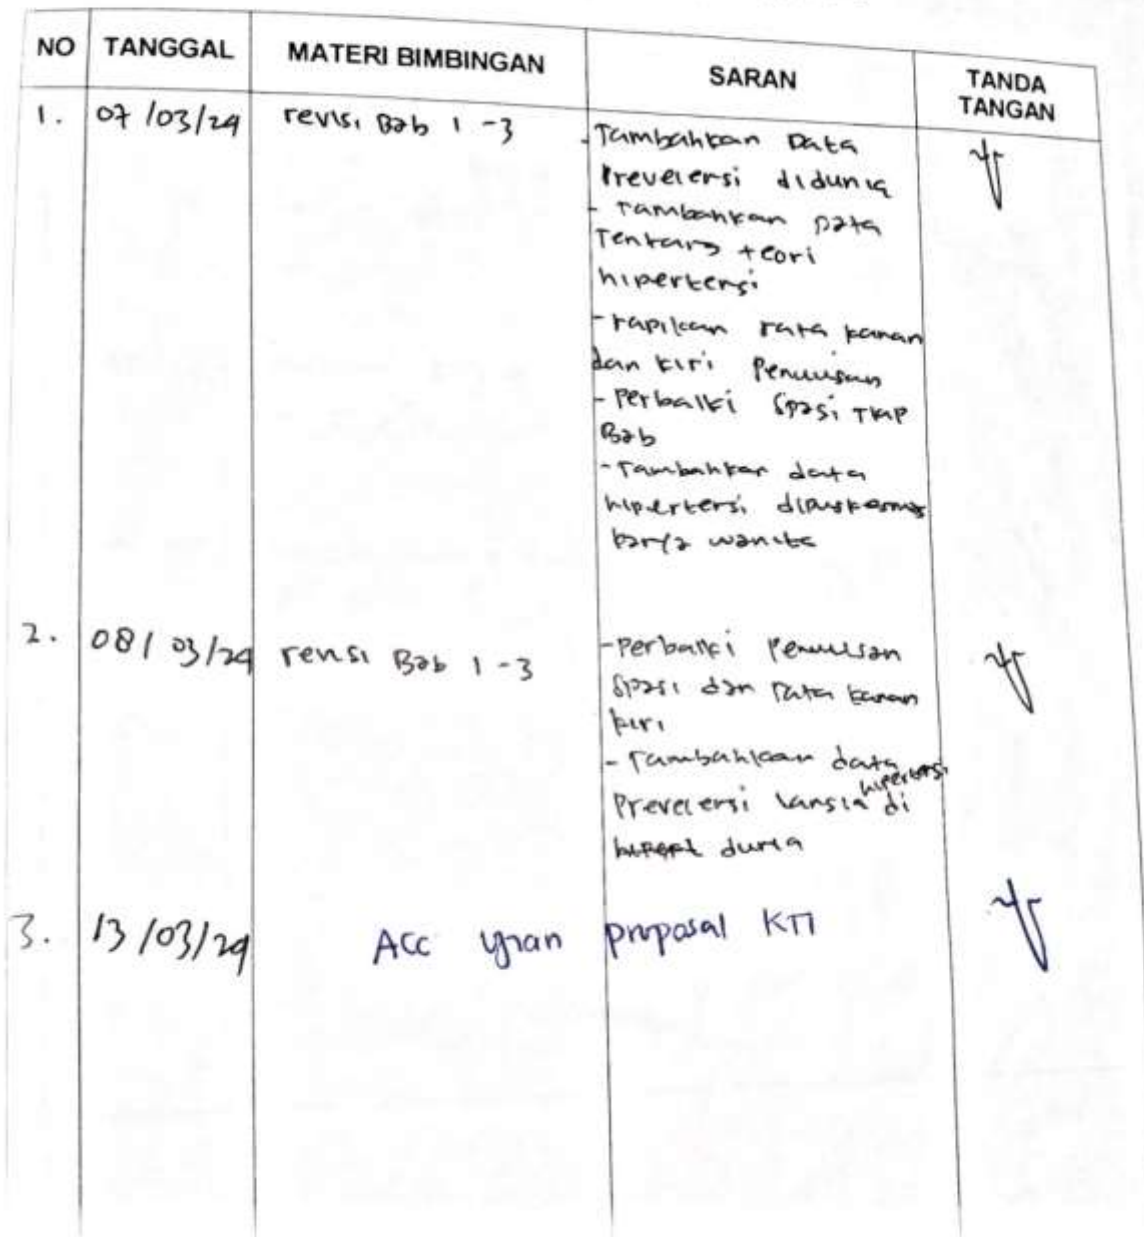 NO TANGGAL MATERI BIMBINGAN SARAN TANDA TANGAN
1. 07/03/24 revisi Bab 1-3
- Tambahkan Data
Prevelensi didunia
- Tambahkan Data
Tentang teori
hipertensi
- rapikan rata kanan
dan kiri Penulisan
- Perbaiki Spasi Tiap
Bab
- Tambahkan data
hipertensi dipuskesmas
karya wanita
2. 08/03/24 revisi Bab 1-3
- Perbaiki Penulisan
Spasi dan rata kanan
kiri
- Tambahkan data
Prevelensi lansia hipertensi di
dunia
3. 13/03/24 Acc ujian proposal KTI